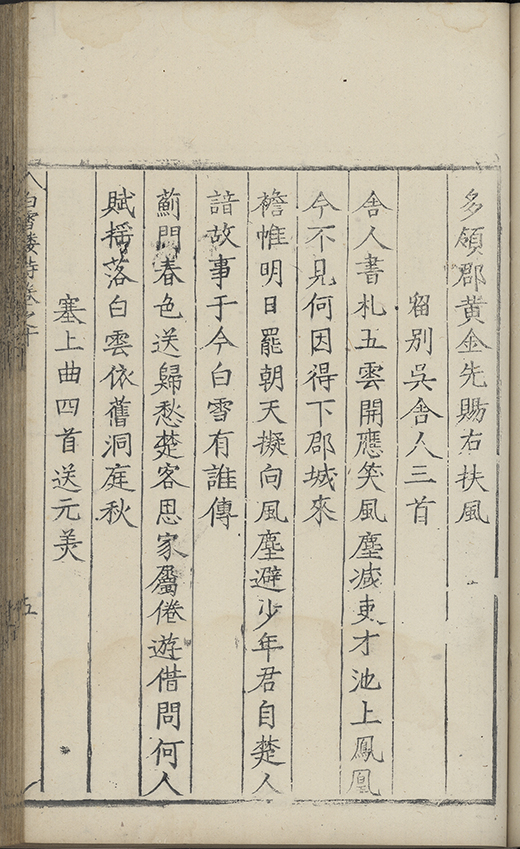 多領郡黄金先賜右扶風
留别吳舍人三首
舍人書札五雲開應笑風塵減吏才池上鳳凰
今不見何因得下郡城來
襜帷明日罷朝天擬向風塵避少年君自楚人
諳故事于今白雪有誰傳
薊門春色送歸愁楚客思家屬倦遊借問何人
賦揺落白雲依舊洞庭秋
塞上曲四首送元美
白雪樓詩卷之十